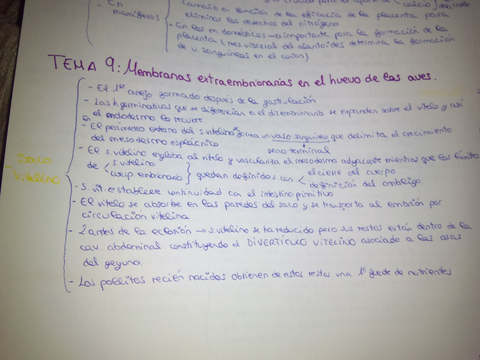 - En mamíferos
eliminar los desechos del nitrógeno
- En los m. domésticos → importante para la formación de la
placenta (mes. visceral del alantoides determina la formación
de v. sanguíneos en el corion)
TEMA 9: Membranas extraembrionarias en el huevo de las aves.
SACO VITELINO
- El 1er anejo formado después de la gastrulación
- Las h. germinativas que se diferencian a el discoblasto se expanden sobre el vitelo y así
el endodermo lo recubre
- En el perímetro externo del s. vitelino se forma un vaso sanguíneo que delimita el crecimiento
del mesodermo esplácnico
seno terminal
- El s. vitelino engloba al vitelo y vasculariza el mesodermo adyacente mientras que los límites
de s. vitelino
cuerp. embrionario
quedan definidos con
el cierre del cuerpo
definición del ombligo.
- S. vit. establece continuidad con el intestino primitivo
- El vitelo se absorbe en las paredes del saco y se transporta al embrión por
circulación vitelina
- 2 antes de la eclosión → s. vitelino se ha reducido pero sus restos están dentro de la
cav. abdominal constituyendo el DIVERTÍCULO VITELINO asociado a las asas
del yeyuno.
- Los pollitos recién nacidos obtienen de estos restos una 1ª fuente de nutrientes